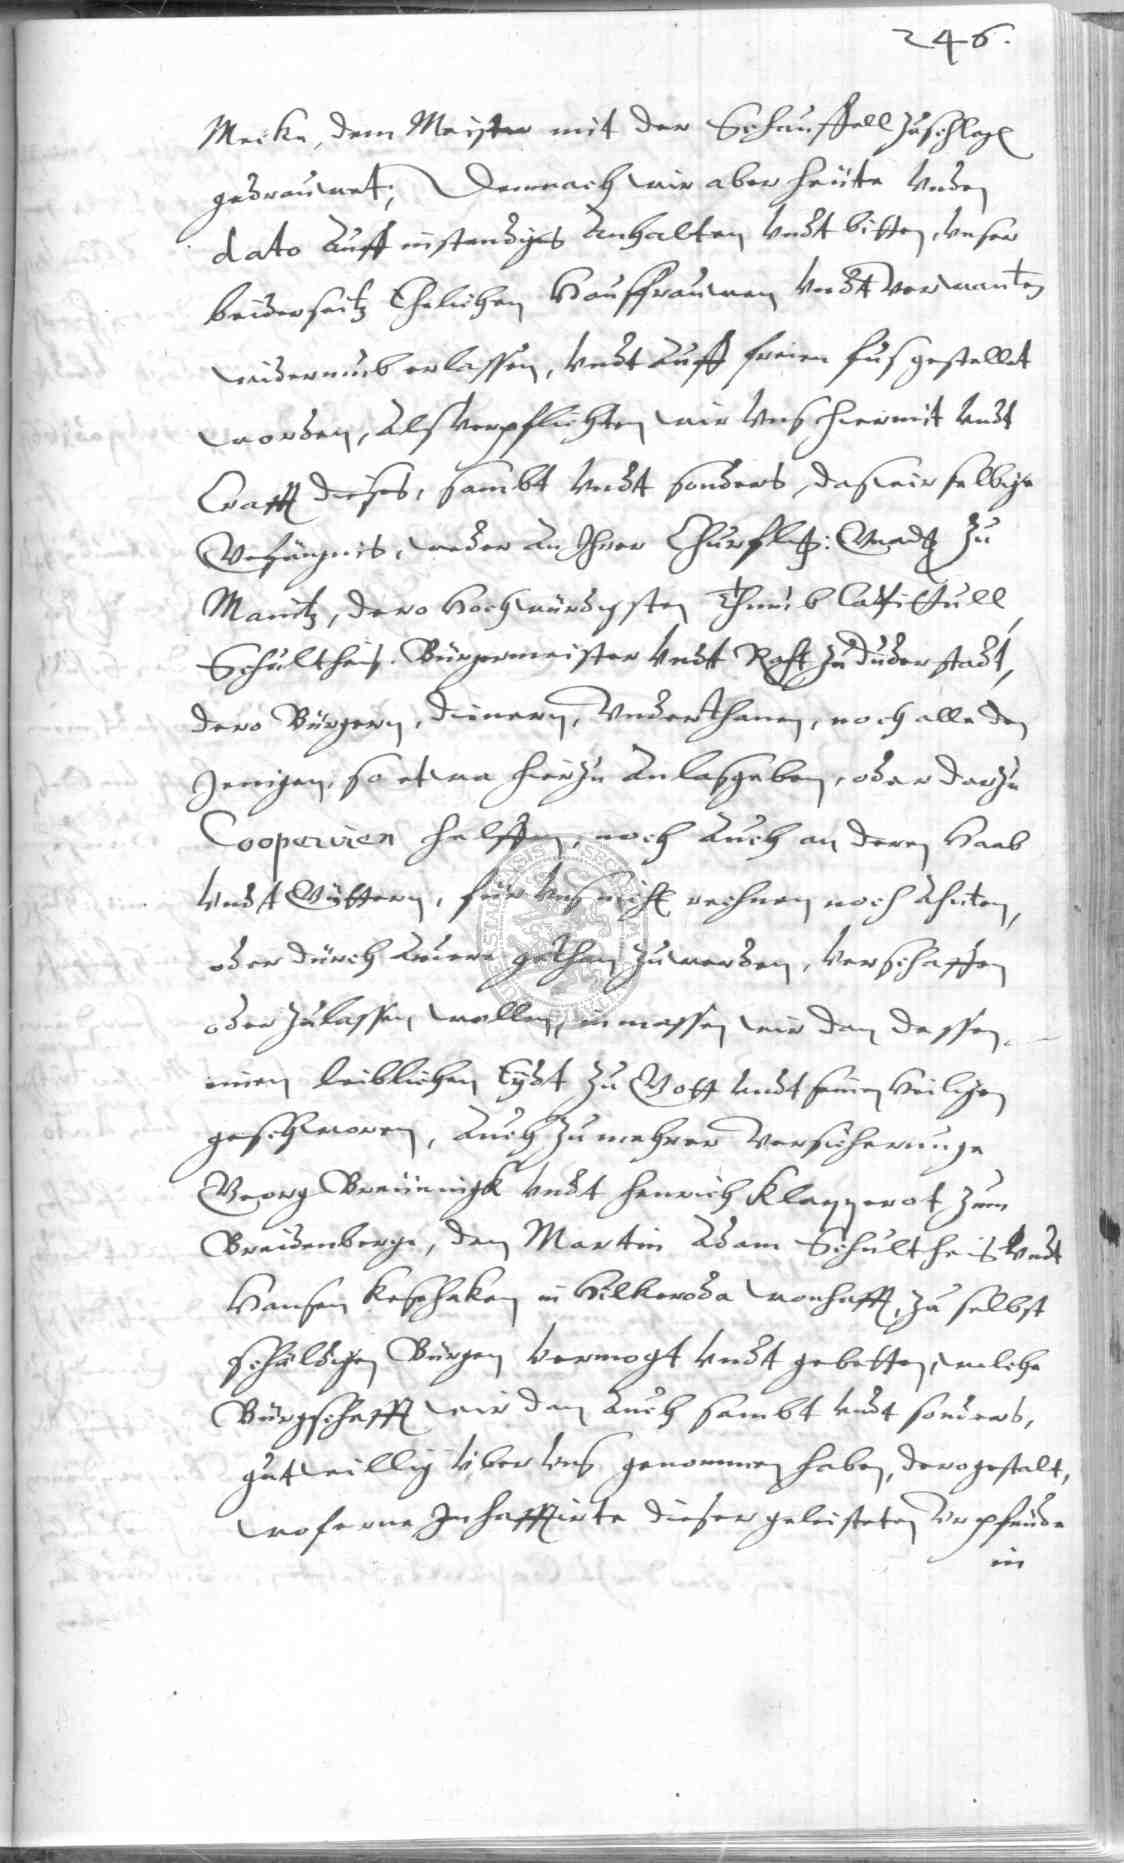 246.
Mecke, dem Meister mit der Schauffell zuschlag
gedrauwet; Demnach wir aber heute Unden
dato Auff instendiges Anhalten Undt bitten, unser
beiderseitz Ehelichen Hauffrauwen Undt Verwanten
widerumb erlassen, Undt Auff freien fus gestellet
worden, Als Verpflichten wir Uns hiermit Undt
Crafft dieses, sambt Undt sonders, das wir selbige
Gefängnis, weder An Ihrer Churfltz: Gnadtz zu
Maintz, dero Hochwürdigsten Thumb Capittull,
Schultheis. Bürgermeister Undt Raht zu duderstadt,
dero Bürgern, dienern, Underthanen, noch alle den
Jenigen, so etwa hierzu Anlas geben, oder darzu
Cooperiren helffen, noch Auch an deren Haab
Undt Güttern, für Uns nicht rechnen noch Ahnten,
oder durch Andere gethan zu werden, Verschaffen
oder zulassen wollen, inmassen wir dan dessen
einen leiblichen Eydt zu Gott undt seinen Heiligen
geschworen, Auch zu mehrer Versicherunge
Georg Breünnigk Undt Henrich Klapperot zum
Breidenberge, den Martin Adam Schultheis Undt
Hansen in Hilkeroda wonhafft, zu selbst
schüldigen Bürgen Vermogt Undt gebetten, welche
Bürgschafft wir dan Auch sambt undt sonders,
gutwillig Uber Uns genommen haben, dero gestalt,
woferne Inhafftirte dieser geleisteten Urpfeide
in